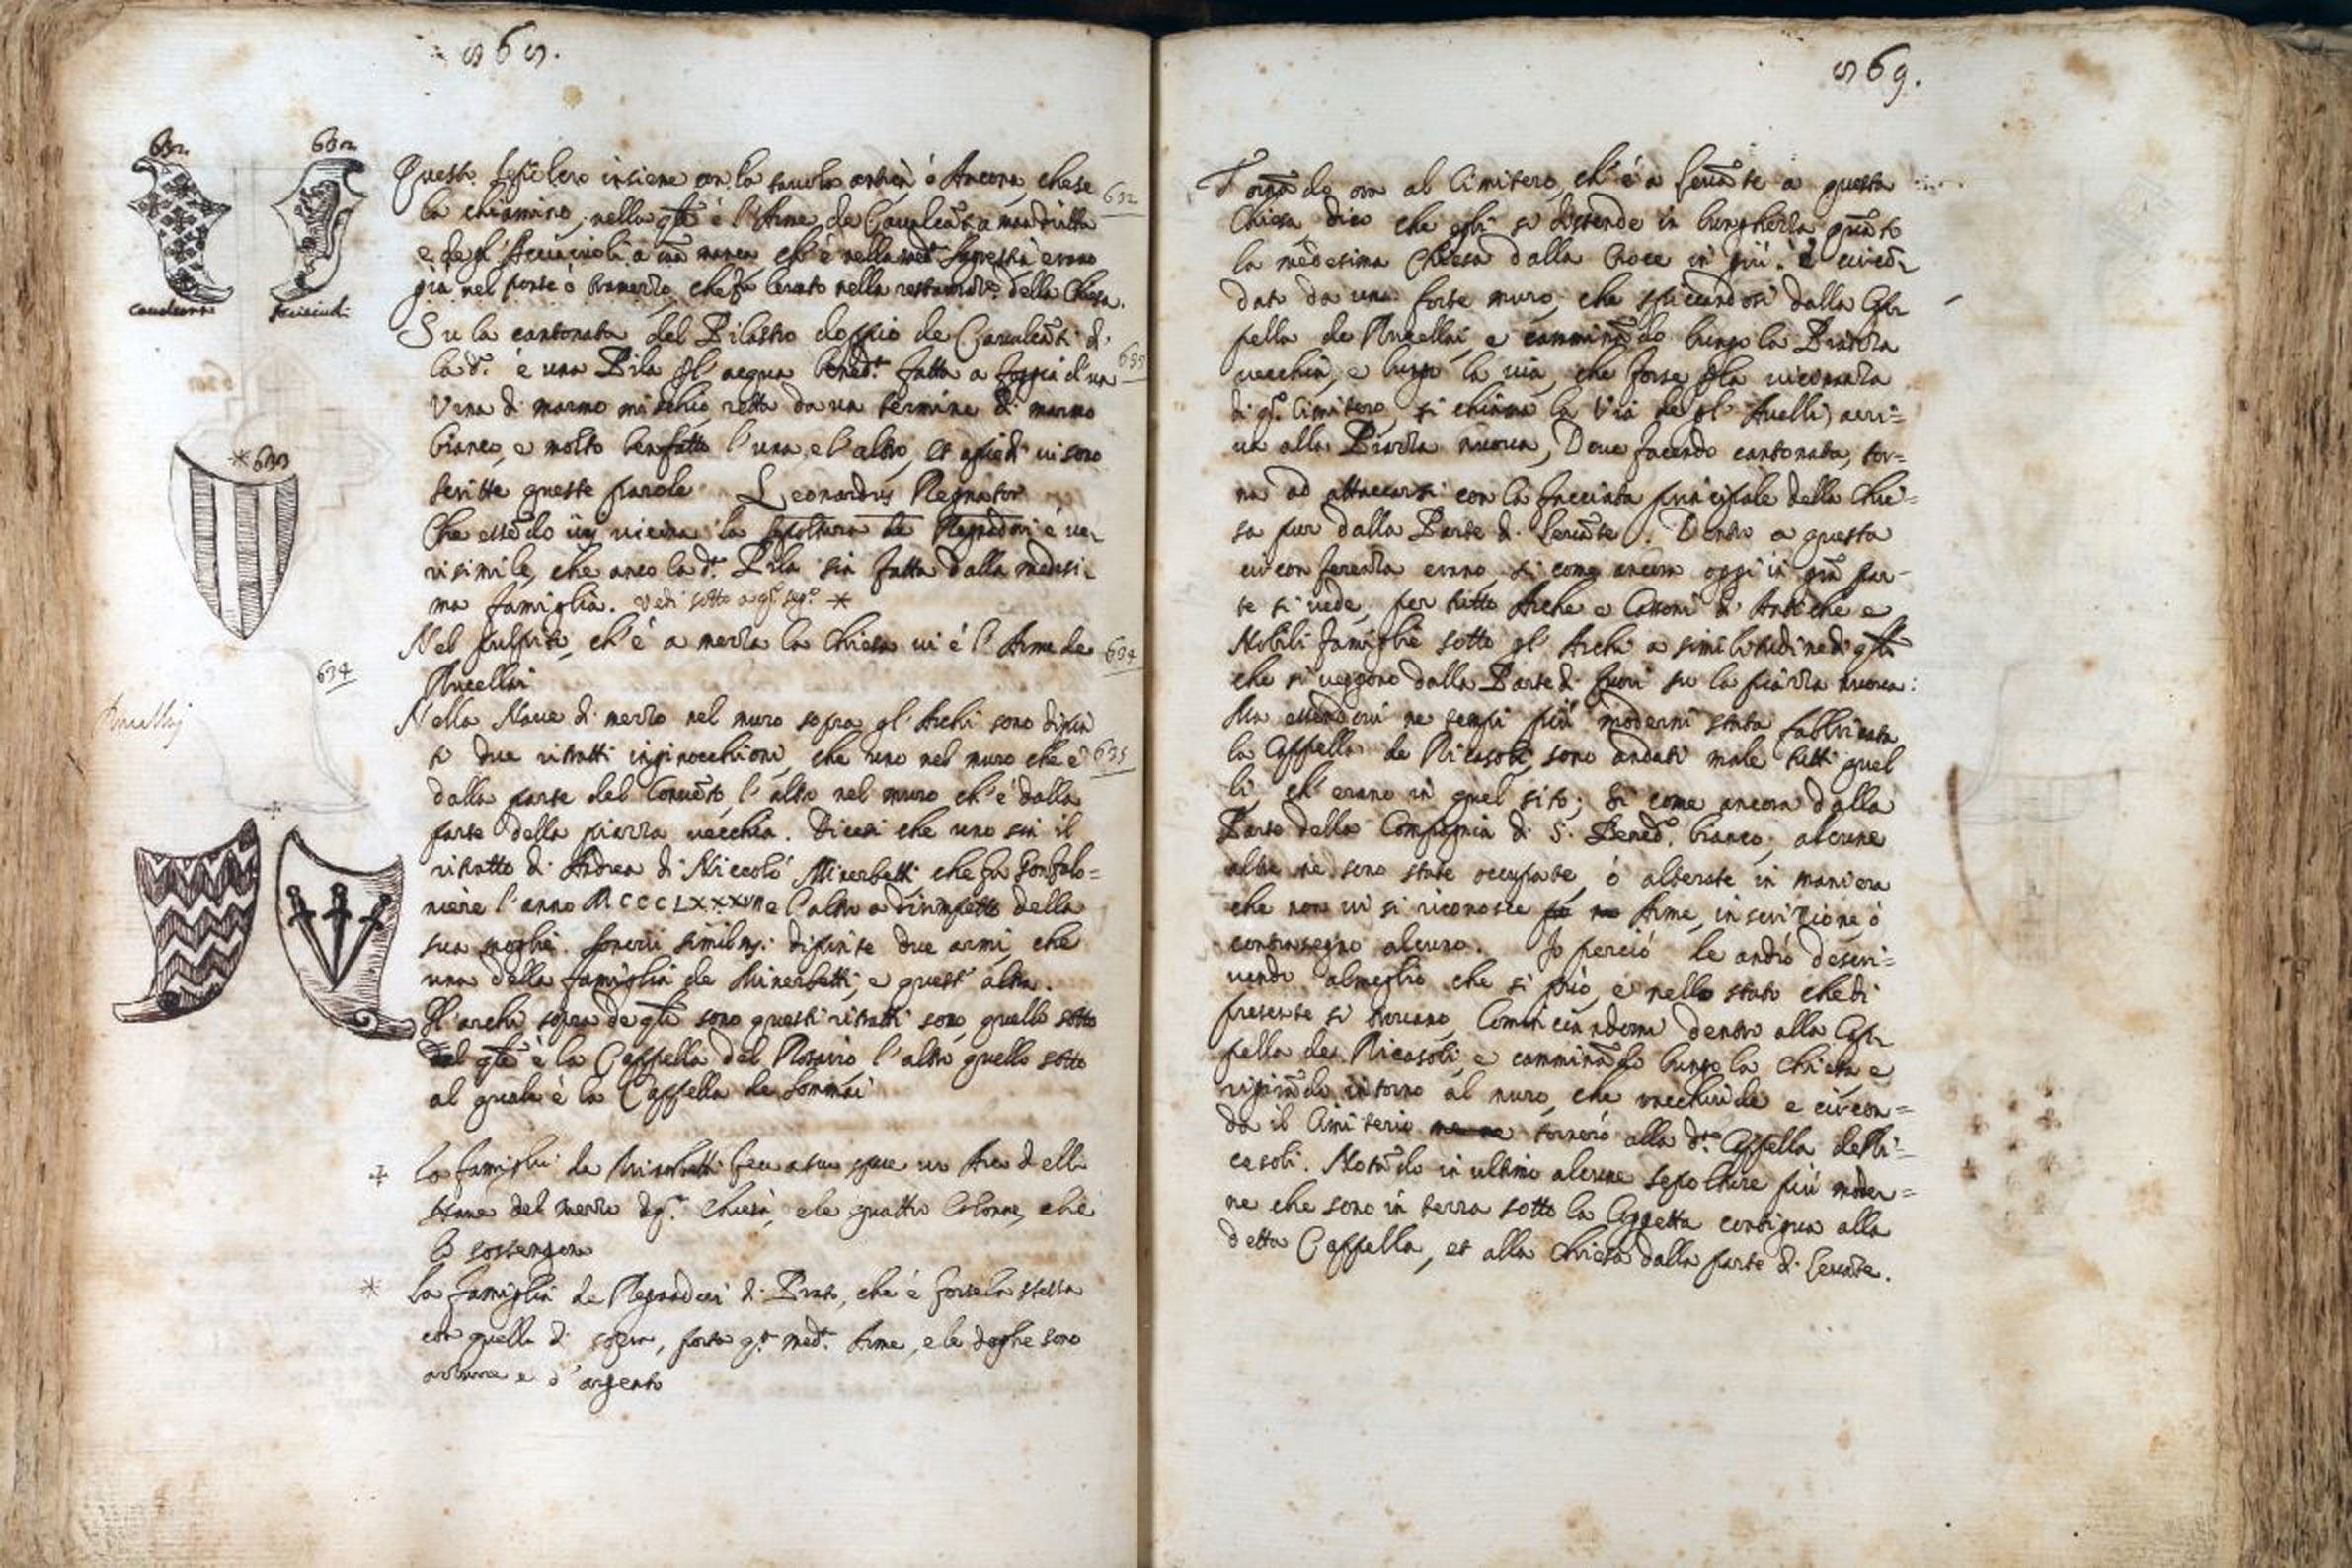 568.
632.
632
Cavalcanti
Acciaiuoli
*633
634
Rucellai
Questo Sepolcro insieme con la tavola antica ò Ancona, che se
la chiamino, nella qle è l'Arme de Cavalcati a man dritta
e degl' Acciaiuoli a man manca, ch' è nella med.ª Sagrestia erano
già nel ponte ò tramezzo, che fu levato nella restauraz.e della Chiesa.
632
Su la cantonata del Pilastro doppio de Cavalcati di
la d.ª è una Pila pl' acqua bened.ª fatta a foggia d'una
633
Urna di marmo mischio retta da un termine di marmo
bianco, e molto ben fatto l'una, e l'altro, et a piedi vi sono
scritte queste parole Leonardus Regnator
Che essedo ivi vicina la sepoltura de Regnadori è ve-
risimile, che anco la d.ª Pila sia fatta dalla medesi-
ma famiglia. vedi sotto a qº segº *
Nel pulpito, ch'è a mezza la Chiesa vi è l'Arme de
634
Rucellai
Nella Nave di mezzo nel muro sopra gl' Archi sono dipin
ti due ritratti inginocchioni, che uno nel muro che è
635
dalla parte del Conveto l'altro nel muro ch'è dalla
parte della piazza vecchia. Dicesi che uno sia il
ritratto di Andrea di Niccolò Minerbetti che fu Gonfalo=
niere l'anno MCCCLXXXVII e l'altro a dirimpetto della
sua moglie. Sonovi similmº. dipinte due armi, che
una della famiglia de Minerbetti, e quest' altra.
Gl'archi, sopra de qli sono questi ritratti sono, quello sotto
del qle è la Cappella del Rosario l'altro quello sotto
al quale è la Cappella de Sommai
+ La famiglia de Minerbetti fece a sue spese un Arco delli
Nave del mezzo di qª. Chiesa, e le quattro Colonne, che
lo sostengono
* La famiglia de Regnadori di Prato, che è forse la stessa
con quella di sopra, porta qª. medª. Arme, e le doghe sono
azzurre e d' argento
569.
Tornado ora al Cimitero, ch' è a Levate a questa
Chiesa, dico che egli si distende in lunghezza quato
la medesima Chiesa dalla Croce in giù. è circon-
dato da uno forte muro, che spiccandosi dalla Cap-
pella de Rucellai, e camminado lungo la Piazza
vecchia, e lungo la via, che forse pla vicinanza
di qº. Cimitero, si chiama la Via de gl' Avelli, arri=
va alla Piazza nuova, Dove facendo cantonata, tor=
na ad attaccarsi con la facciata principale della Chie=
sa pur dalla Parte di Levate. Dentro a questa
circonferenza erano, si come ancora oggi in gra par-
te si vede, per tutto Arche e Cassoni di Antiche e
Nobili famiglie sotto gl' Archi a similitudine di qlli
che si veggono dalla Parte di fuori su la piazza nuova:
Ma essendovi ne tempi più moderni stata fabbricata
la Cappella de Ricasoli, sono andati male tutti quel
li, ch'erano in quel sito; Si come ancora dalla
Parte della Compagnia di S. Benedº. bianco, alcune
altre ne sono state occupate, ò alterate in maniera
che non vi si riconosce Arme, inscrizione, ò
contrasegno alcuno. Io perciò le andrò descri=
vendo al meglio che si può, e nello stato che di
presente si trovano, Cominciandomi dentro alla Cap-
pella de Ricasoli, e camminado lungo la Chiesa e
rigirado intorno al muro, che racchiude e circon=
da il Cimiterio tornerò alla d.ª Cappella de Ri=
casoli. Notado in ultimo alcune sepolture più moder=
ne che sono in terra sotto la Loggetta contigua alla
detta Cappella, et alla Chiesa dalla parte di Levate.